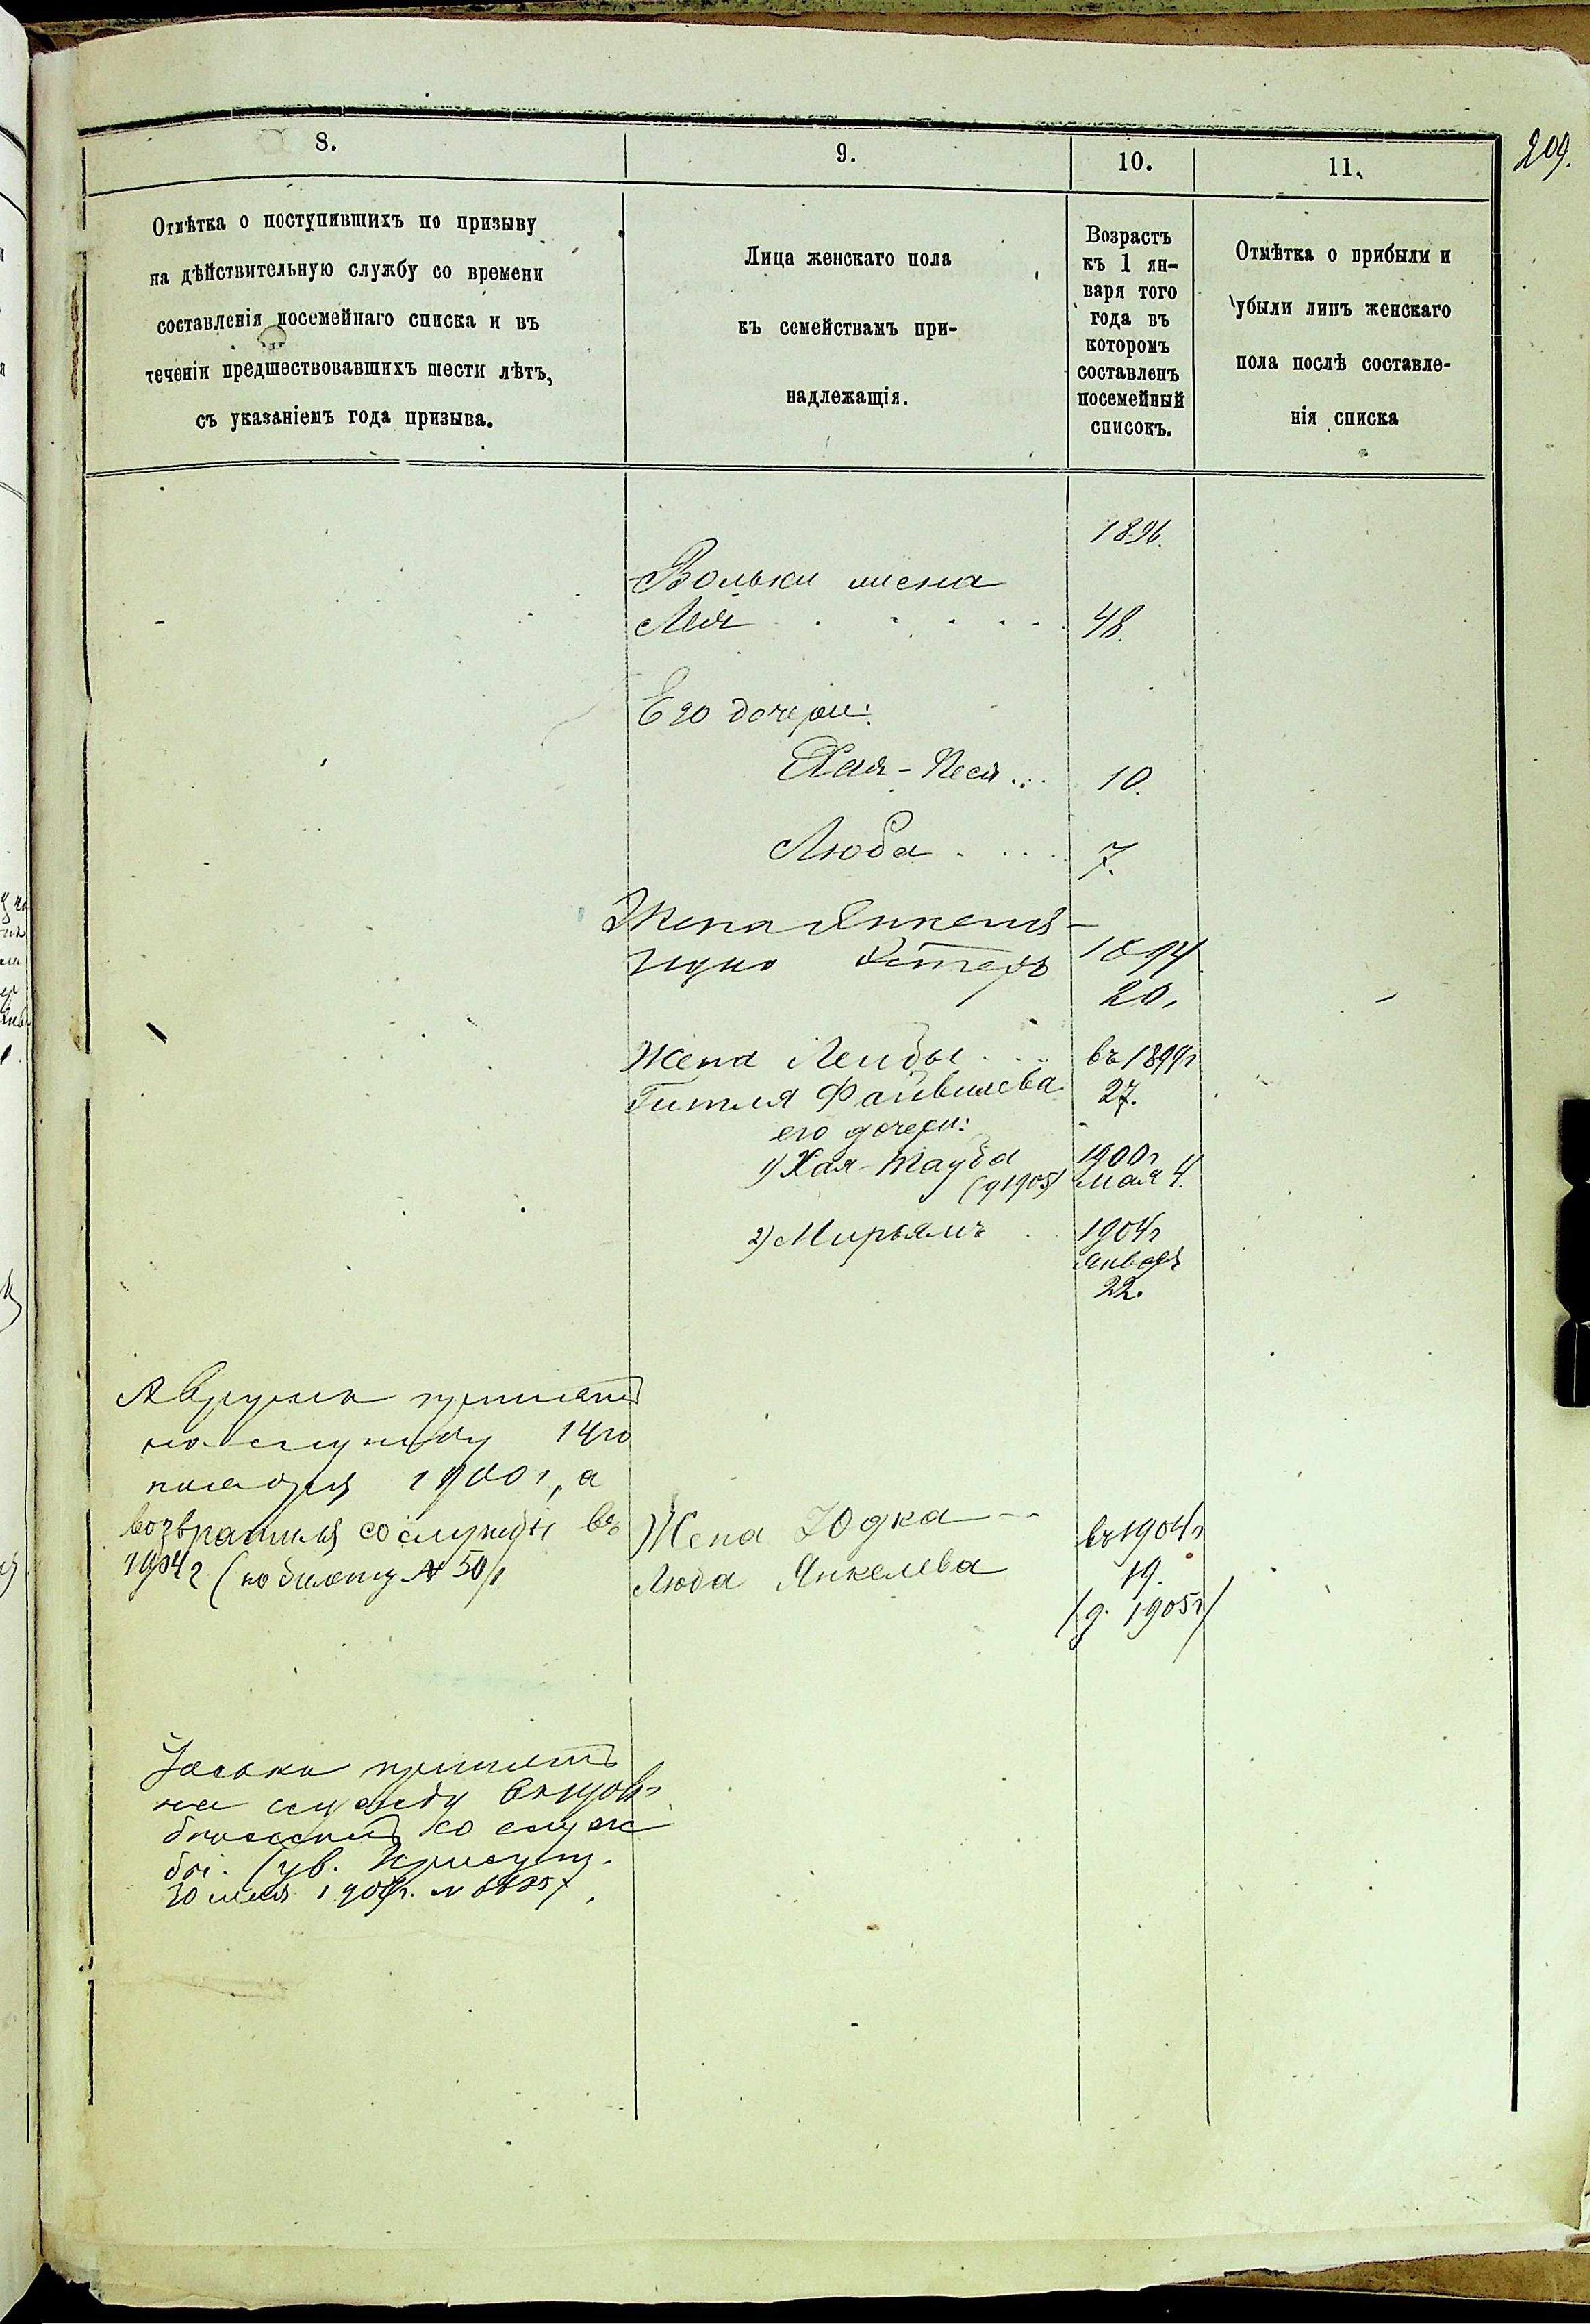 209.
8.
9.
10.
11.
Отмѣтка о поступившихъ по призыву
на дѣйствительную службу со времени
составленія посемейнаго списка и въ
теченіи предшествовавшихъ шести лѣтъ,
съ указаніемъ года призыва.
Лица женскаго пола
къ семействамъ при-
надлежащія.
Возрастъ
къ 1 ян-
варя того
года въ
которомъ
составленъ
посемейный
списокъ.
Отмѣтка о прибыли и
убыли лицъ женскаго
пола послѣ составле-
нія списка
1896.
Вольки жена
Лея 48.
Его дочери:
Хая-Песя 10.
Люба 7.
Жена Янкеля-
Эстеръ
20.
Жена Лейбы въ 1899г
Гитля Файвишева 27.
его дочери:
1) Хая-Тауба 1900г
(д 1905) мая 4.
2) Мирьямъ 1904г
Январь
22.
Аврумъ принятъ
на службу 14го
1900г, а
возвратился со службы въ
1904г (по билету № 50)
Жена Юдка въ 1904г
Люба Янкелева 19.
(д. 1905г)
принятъ
на службу
со служ
бы. (ув. Присут.
30 мая